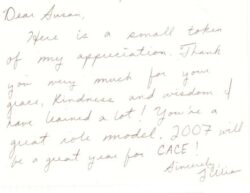 Dear Susan,
Here is a small token
of my appreciation. Thank
you very much for your
grace, kindness and wisdom I
have learned a lot! You're a
great role model. 2007 will
be a great year for CACE!
Sincerely,
Lillian